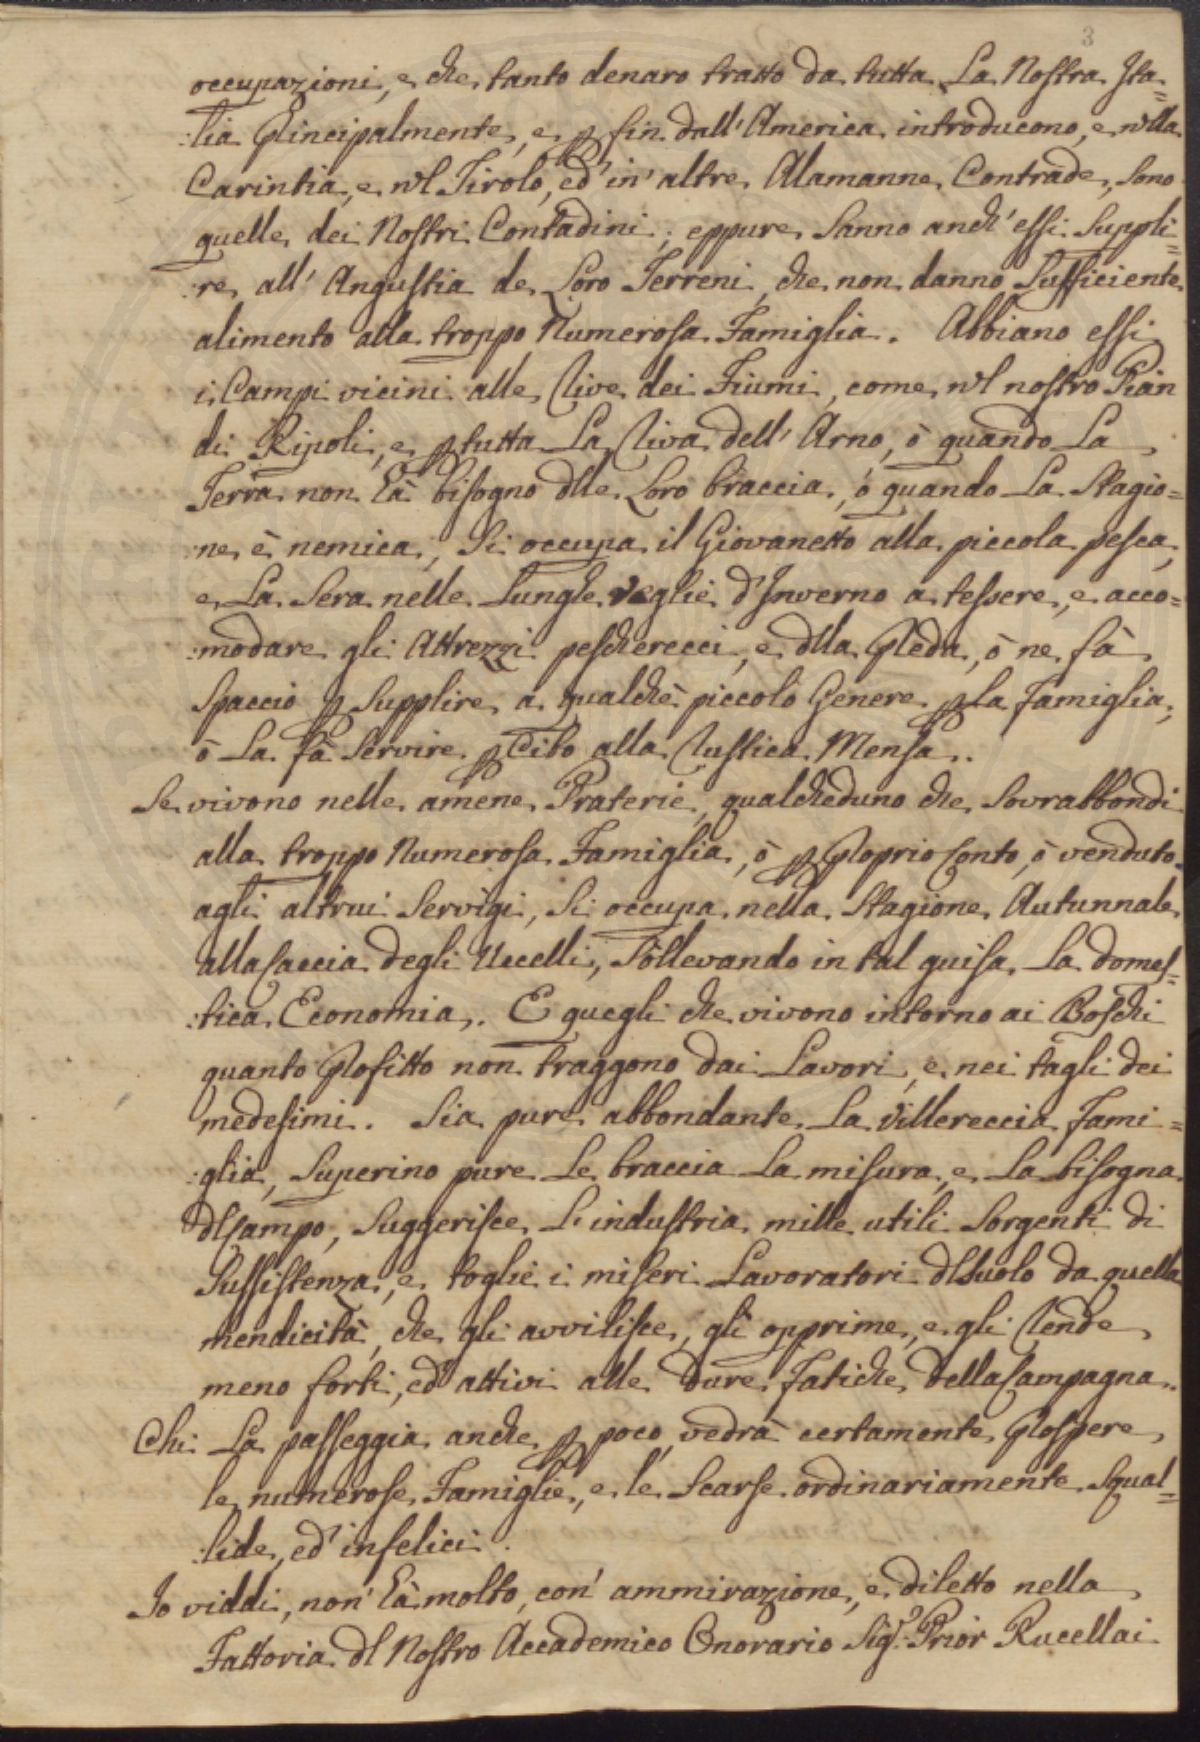 3
occupazioni, e che tanto denaro tratto da tutta La Nostra Ita=
:lia Principalmente, e p fin dall' America introducono, e nella
Carintia, e nel Tirolo, ed in' altre Alamanne Contrade, sono
quelle dei Nostri Contadini; eppure Sanno anch' essi Suppli=
:re all' Angustia de Loro Terreni, che non danno Sufficiente
alimento alla troppo Numerosa Famiglia. Abbiano essi
i Campi vicini alle Rive dei Fiumi, come nel nostro Pian
di Ripoli, e p tutta La Riva dell' Arno, ò quando La
Terra non hà bisogno dlle Loro braccia, ò quando La Stagio=
:ne è nemica, Si occupa il Giovanetto alla piccola pesca,
e La Sera nelle Lunghe veglie d'Inverno a tessere, e acco=
:modare gli Attrezzi pescherecci, e dlla Preda, ò ne fà
Spaccio p Supplire a qualchè piccolo Genere p la famiglia,
ò La fà Servire p Cibo alla Rustica Mensa.
Se vivono nelle amene Praterie, qualcheduno che Sovrabbondi
alla troppo Numerosa Famiglia, ò p Proprio Conto, ò venduto
agli altrui Servigi, Si occupa nella Stagione Autunnale
alla Caccia degli Uccelli, Sollevando in tal guisa La domes=
:tica Economia. E quegli che vivono intorno ai Boschi
quanto Profitto non traggono dai Lavori, e nei tagli dei
medesimi. Sia pure abbondante La villereccia Fami=
:glia, Superino pure Le braccia La misura, e La bisogna
dl Campo, Suggerisce L'industria mille utili Sorgenti di
Sussistenza, e toglie i miseri Lavoratori dl Suolo da quella
mendicità, che gli avvilisce, gli opprime, e gli Rende
meno forti, ed attivi alle dure fatiche della Campagna.
Chi La passeggia anche p poco, vedrà certamente Prospere
le numerose Famiglie, e le Scarse ordinariamente Squal=
:lide, ed infelici.
Io viddi, non hà molto, con' ammirazione, e diletto nella
Fattoria dl Nostro Accademico Onorario Sigr. Prior Rucellai